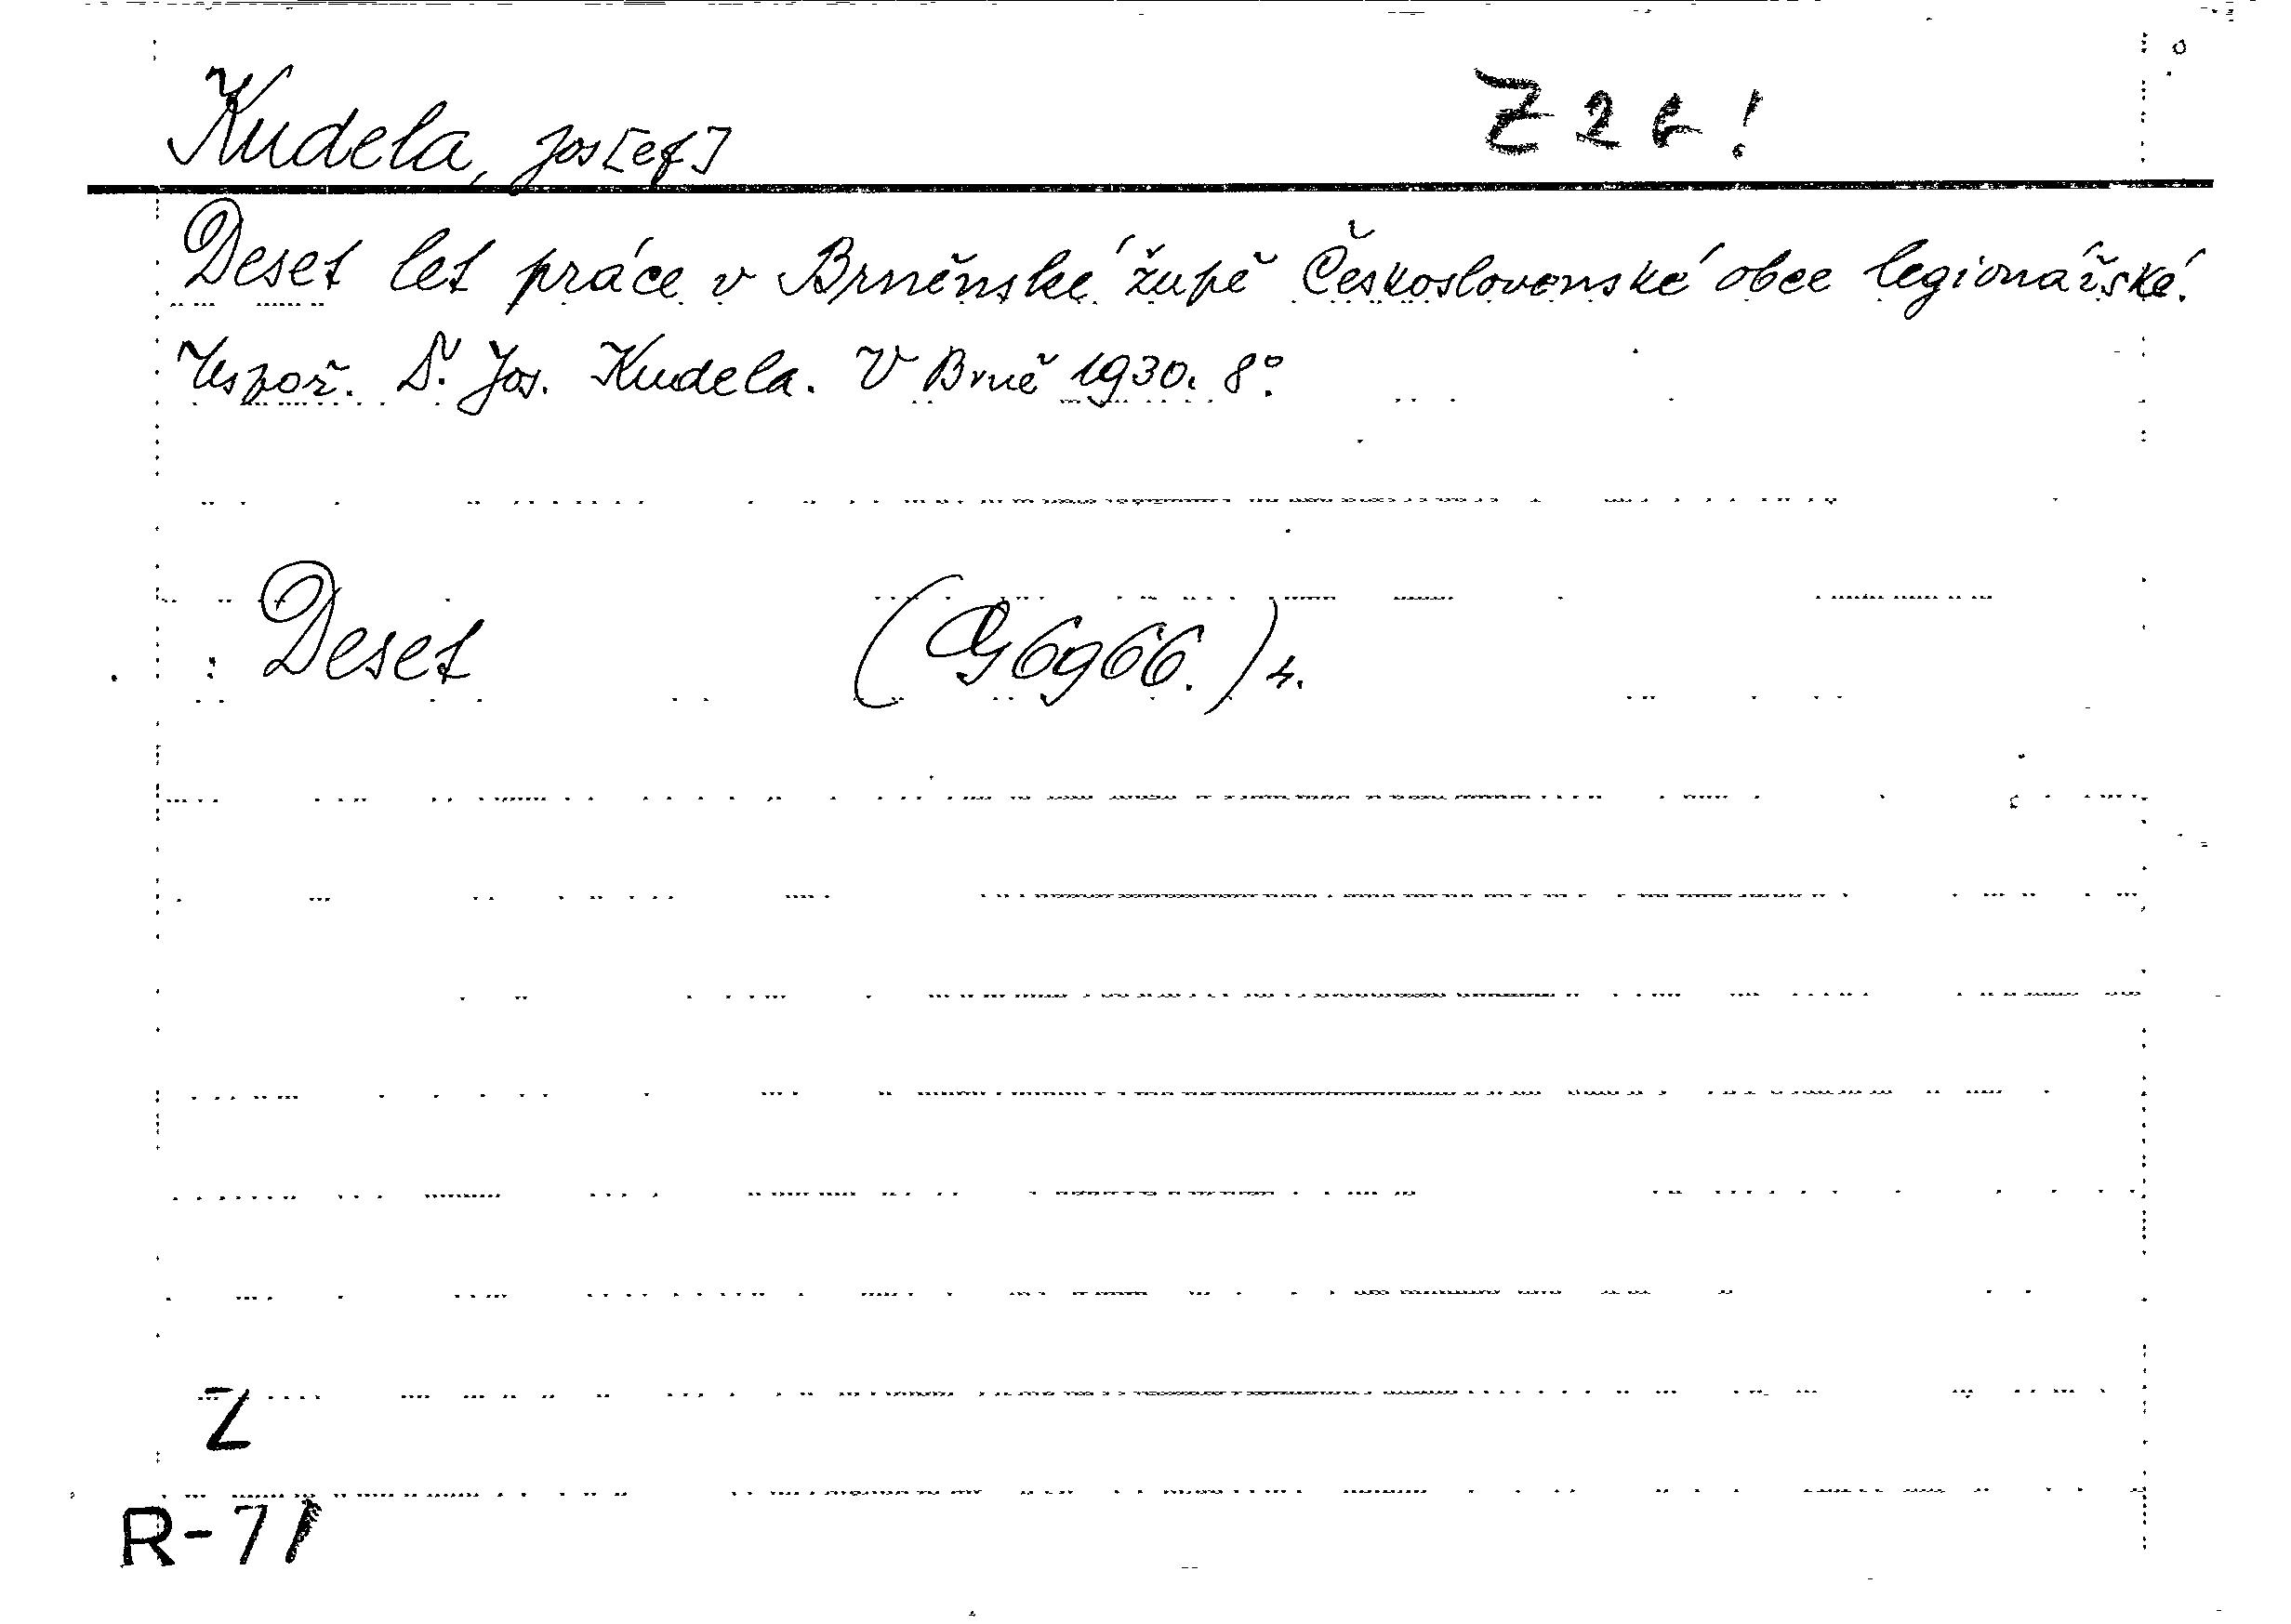 Kudela, Jos[ef]
Deset let práce v Brněnské župě Československé obce legionářské.
Uspoř. Dr. Jos. Kudela. V Brně 1930. 8°.
Deset (G 6966.) 4.
Z
R-71